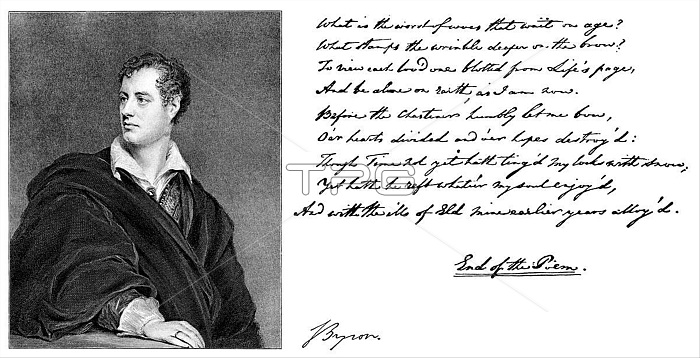 What is the worst of woes that wait on age?
What stamps the wrinkle deeper on the brow?
To view each lov'd one blotted from Life's page,
And be alone on earth, as I am now.
Before the Chastener humbly let me bow,
O'er hearts divided and o'er hopes destroy'd:
Though Time not yet hath ting'd my locks with snow,
Yet hath he reft whate'er my soul enjoy'd,
And with the ills of Eld mine earlier years alloy'd.
End of the Poem.
Byron.
TPG